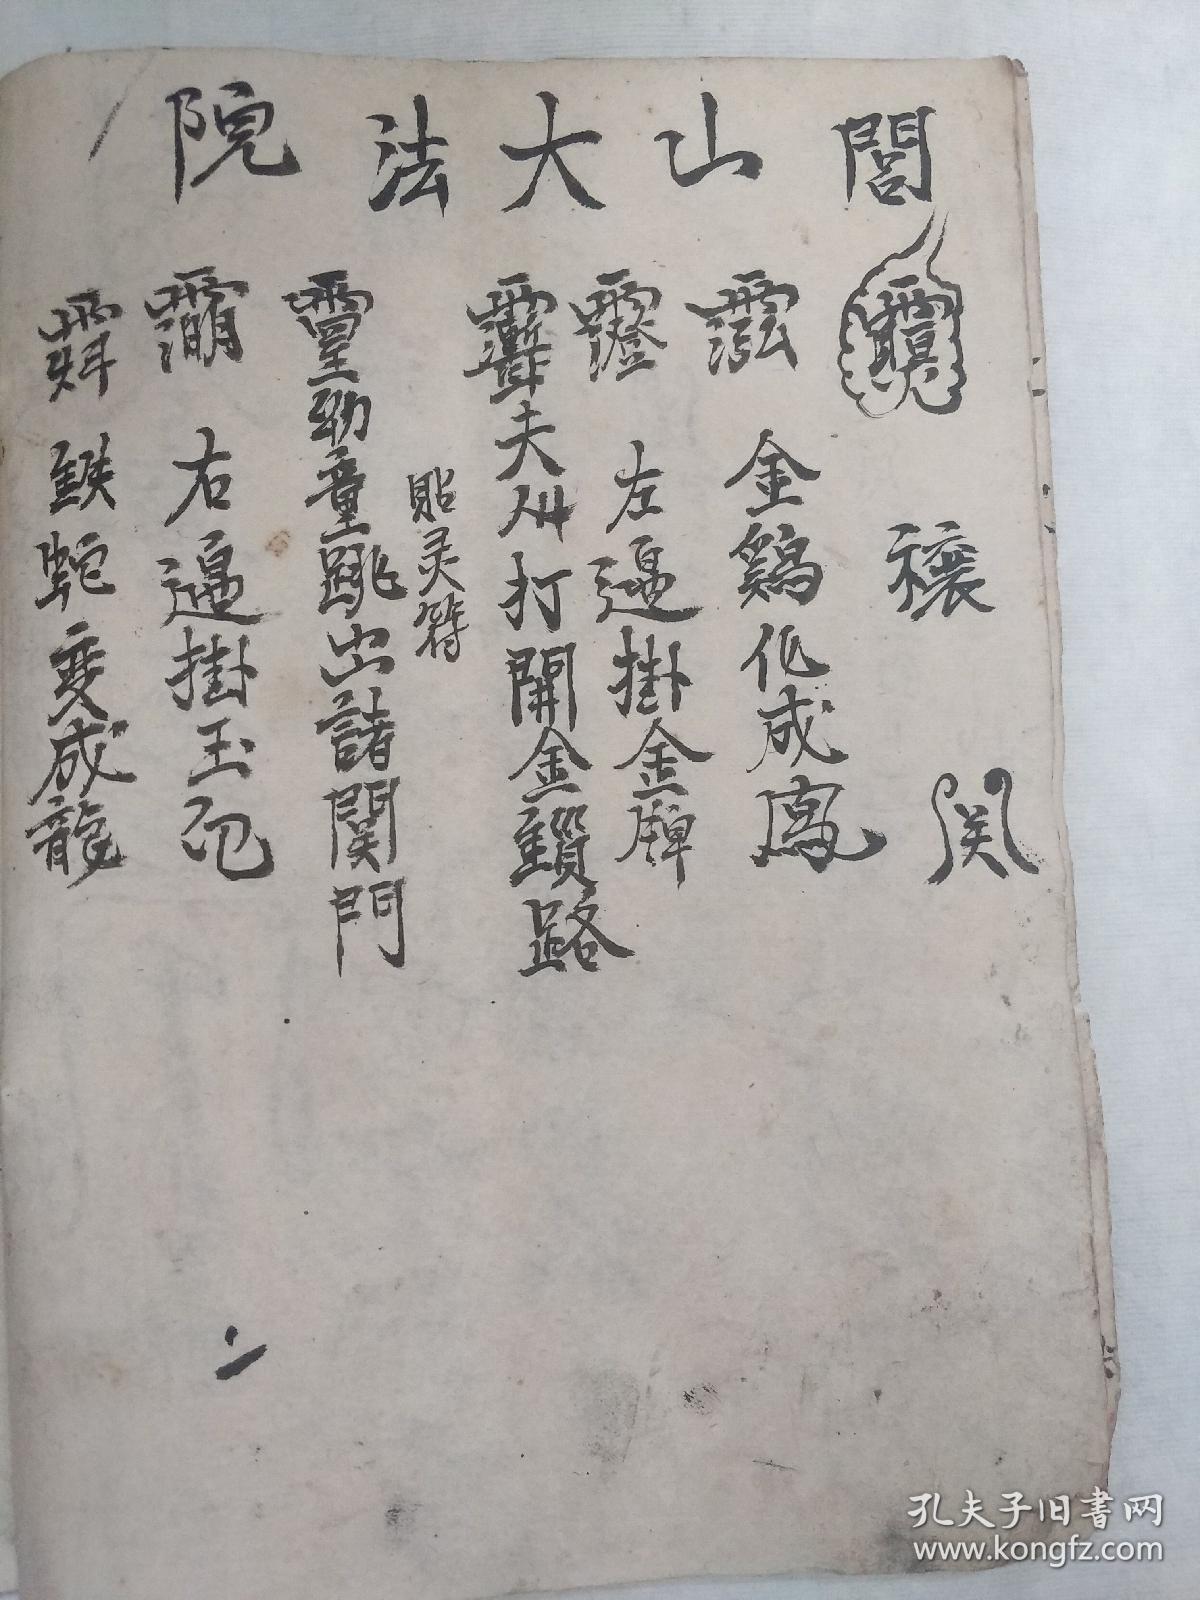 閭山大法院
禳关
金鷄化成鳯
左邉掛金牌
夫人打開金鎖路
貼灵符
幼童跳出諸関門
右邉掛玉印
鉄蛇变成龍
孔夫子旧书网
www.kongfz.com